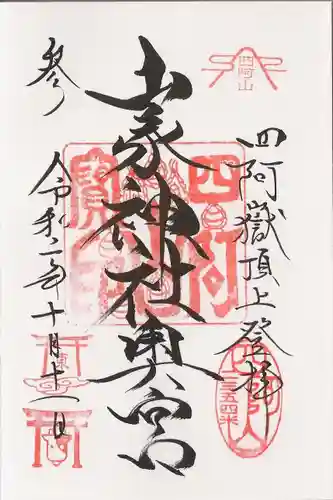 四阿山
四阿嶽頂上登拝
山家神社奥宮
四阿
參
令和二年十月十一日